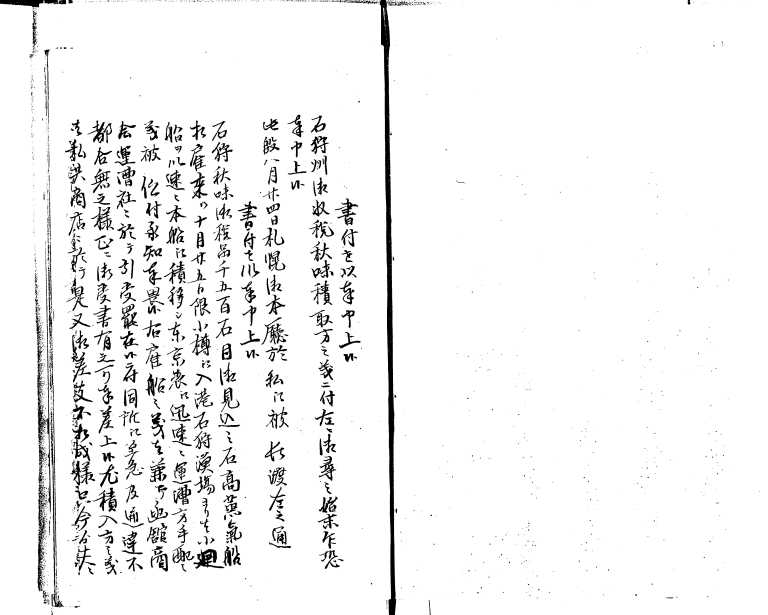 書付を以奉申上候
石狩州御収税秋味積取方之義ニ付左ニ御尋之始末乍恐
奉申上候
此段八月廿四日札幌御本廰於私江被仰渡左之通
書付を以奉申上候
石狩秋味御税品千五百石目御見込之石高蒸氣船
相雇来ル十月廿五日限小樽江入港石狩漁場ゟ小廻
船ヲ以速ニ本船江積移し東京表江迅速ニ運漕方手配之
義被仰付承知奉畏候右雇船之義者兼而函館商
会運漕社ニ於テ引受罷在候ニ付同所江至急及通達不
都合無之様正ニ御受書有之可奉差上候尤積入方之義
者私共商店ニ於テ